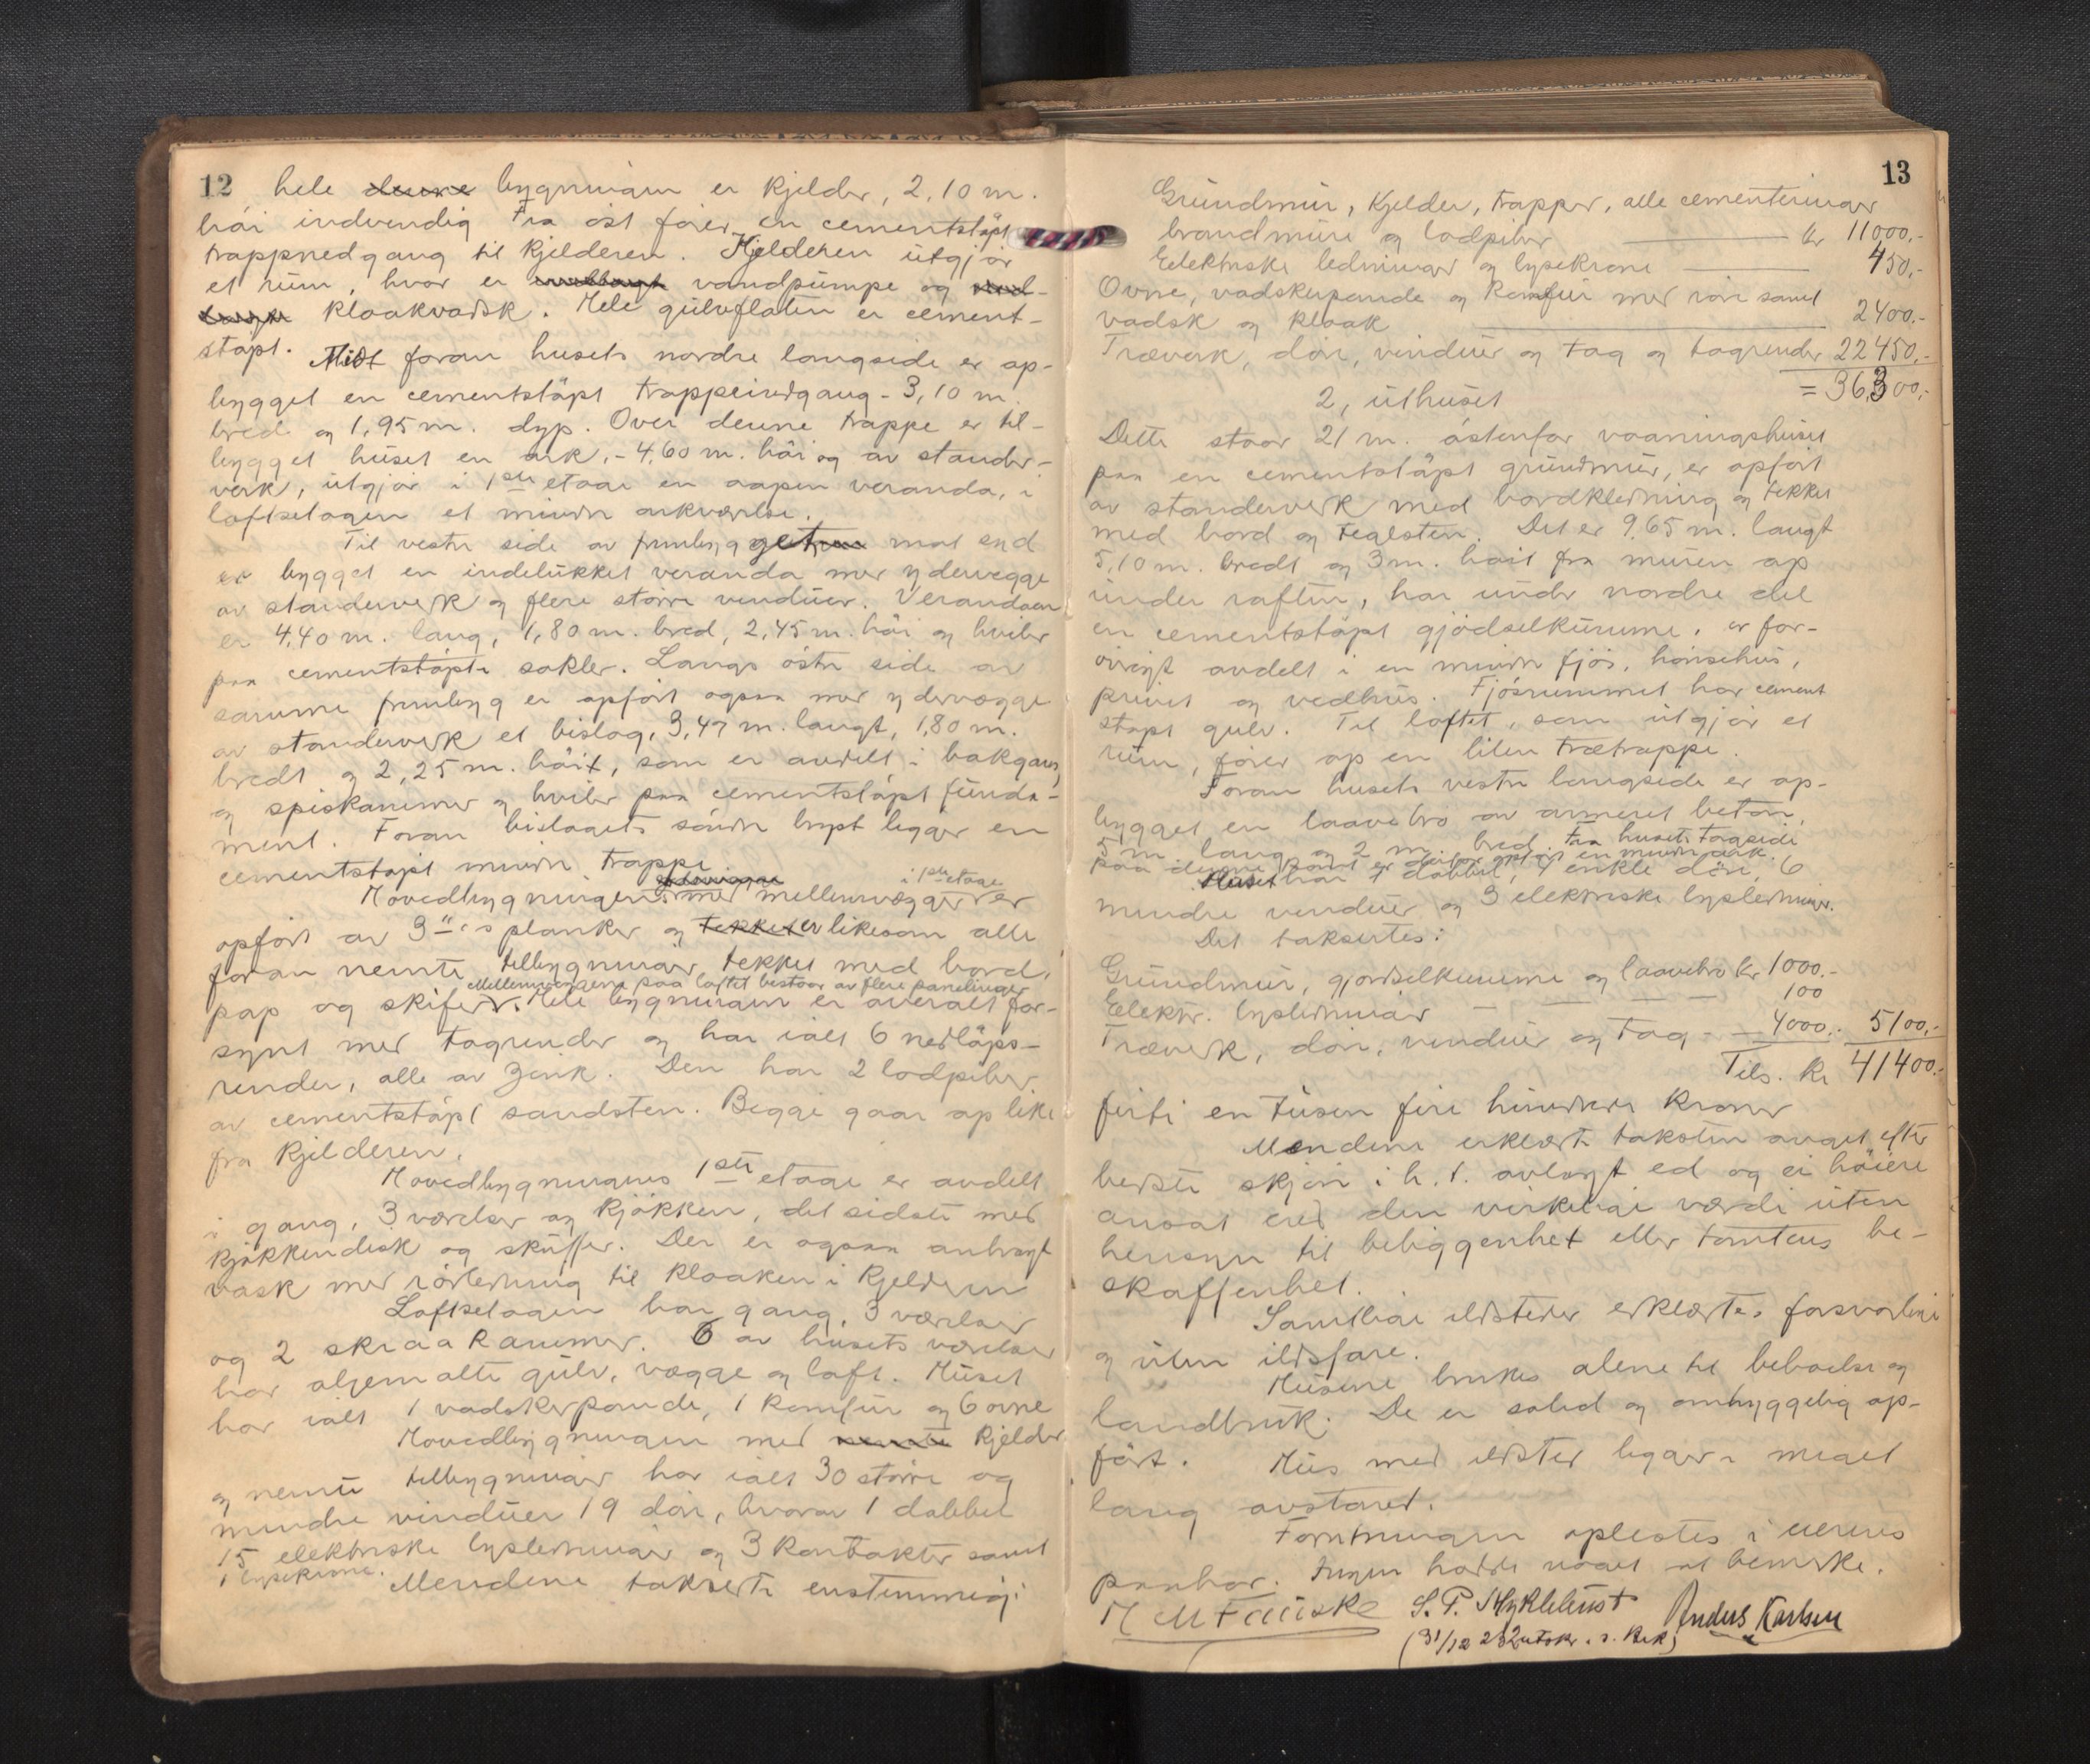 12 hele denne bygningen er kjelder, 2,10 m.
høi indvendig Fra øst fører en cementstøpt
trappnedgang til kjelderen. Kjelderen utgjør
et rum, hvor er indlagt vandpumpe og
kloakvadsk. Hele gulvflaten er cement-
støpt. Midt foran husets nordre langside er op-
bygget en cementstøpt trappeindgang - 3,10 m.
bred og 1,95 m. dyp. Over denne trappe er til-
bygget huset en ark, - 4,60 m. høi og av stander-
verk, utgjør i 1ste etage en aapen veranda, i
loftsetagen et mindre arkværelse.
Til vestre side av frembygget mot syd
er bygget en indelukket veranda med ydervegge
av standerverk og flere større vinduer. Verandaen
er 4,40 m. lang, 1,80 m. bred, 2,45 m. høi og hviler
paa cementstøpte sokler. Langs østre side av
samme frembyg er opført ogsaa med ydervægge
av standerverk et bislag, 3,47 m. langt, 1,80 m.
bredt og 2,25 m. høit, som er avdelt i bakgang
og spiskammer og hviler paa cementstøpt funda-
ment. Foran bislagets søndre kryst ligger en
cementstøpt mindre trappe.
Hovedbygningen med mellemvægger i 1ste etage er
opført av 3"s planker og er likesom alle
foran nemte tilbygninger tekket med bord,
Mellemvæggene paa loftet bestaar av flere panelinger
pap og skifer. Hele bygningen er overalt for-
synt med tagrender og har ialt 6 nedløps-
render, alle av zink. Den har 2 lodpiber
av cementstøpt sandsten. Begge gaar op like
fra kjelderen.
Hovedbygningens 1ste etage er avdelt
i gang, 3 værelser og kjøkken, det sidste med
kjøkkendisk og skuffer. Der er ogsaa anbragt
vask med rørledning til kloaken i kjelderen
Loftsetagen har gang, 3 værelser
og 2 skraakammer. 6 av husets værelser
har oljemalte gulv, vægge og loft. Huset
har ialt 1 vadskerpande, 1 komfur og 6 ovne
Hovedbygningen med nemte kjelder
og nemte tilbygninger har ialt 30 større og
mindre vinduer 19 dør, hvorav 1 dobbel
15 elektriske lysledninger og 3 kontakter samt
1 lysekrone.
Mendene takserte enstemmig:
13
Grundmur, kjelder, trapper, alle cementeringer
brandmure og lodpiber kr 11000,-
Elektriske ledninger og lysekrone 450,-
Ovne, vadskerpande og komfur med rør samt
vadsk og kloak 2400,-
Træverk, dør, vinduer og tag og tagrender 22450,-
= 36,300,-
2, uthuset
Dette staar 21 m. østenfor vaaningshuset
paa en cementstøpt grundmur, er opført
av standerverk med bordkledning og tekket
med bord og teglsten. Det er 9,65 m. langt
5,10 m. bredt og 3 m. høit fra muren op
under raften, har under nordre del
en cementstøpt gjødselkumme, er for-
øvrigt avdelt i en mindre fjøs, hønsehus,
privet og vedhus. Fjøsrummet har cement
støpt gulv. Til loftet, som utgjør et
rum, fører op en liten trætrappe.
Foran husets vestre langside er op-
bygget en laavebro av armeret beton,
5 m. lang og 2 m. bred. Fra husets tagside
paa denne kant er derfor opført en mindre ark.
Huset har 1 dobbel, 4 enkle dør, 6
mindre vinduer og 3 elektriske lysledninger.
Det taksertes:
Grundmur, gjødselkumme og laavebro kr 1000.-
Elektr. lysledninger — — — 100
Træverk, dør, vinduer og tag - - 4000.- 5100,-
Tils. kr 41400.-
firti en tusen fire hundrede kroner
Mendene erklærte taksten avgit efter
bedste skjøn i h. t. avlagt ed og ei høiere
ansat end den virkelige værdi uten
hensyn til beliggenhet eller tomtens be-
skaffenhet.
Samtlige ildsteder erklærtes forsvarlige
og uten ildsfare.
Husene brukes alene til beboelse og
landbruk. De er solid og omhyggelig op-
ført. Hus med ildsted ligger i meget
lang avstand.
Forretningen oplestes i eierens
paahør. Ingen hadde noget at bemerke.
H M Fauske S. P. Myklebust Anders Karlsen
(31/12 232 utskr. s. Bek)